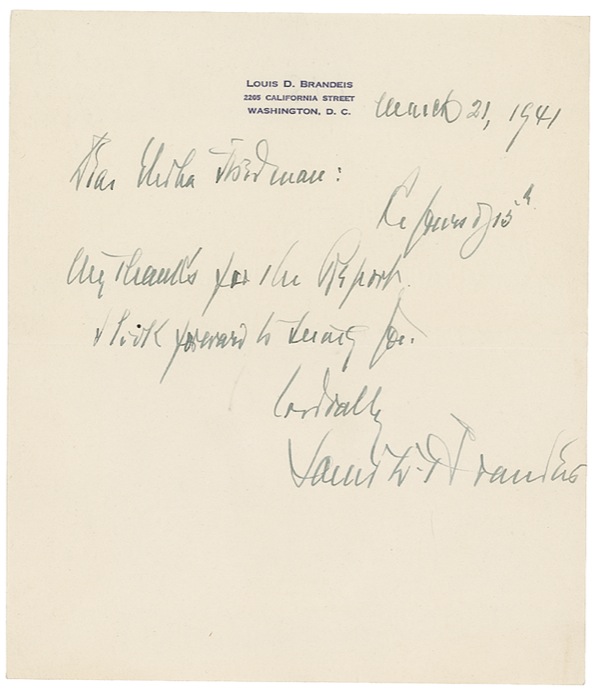 LOUIS D. BRANDEIS
2205 CALIFORNIA STREET
WASHINGTON, D. C.
March 21, 1941
Dear Elisha Friedman:
Re yours of 15th
My thanks for the Report.
I look forward to seeing you.
Cordially
Louis D. Brandeis